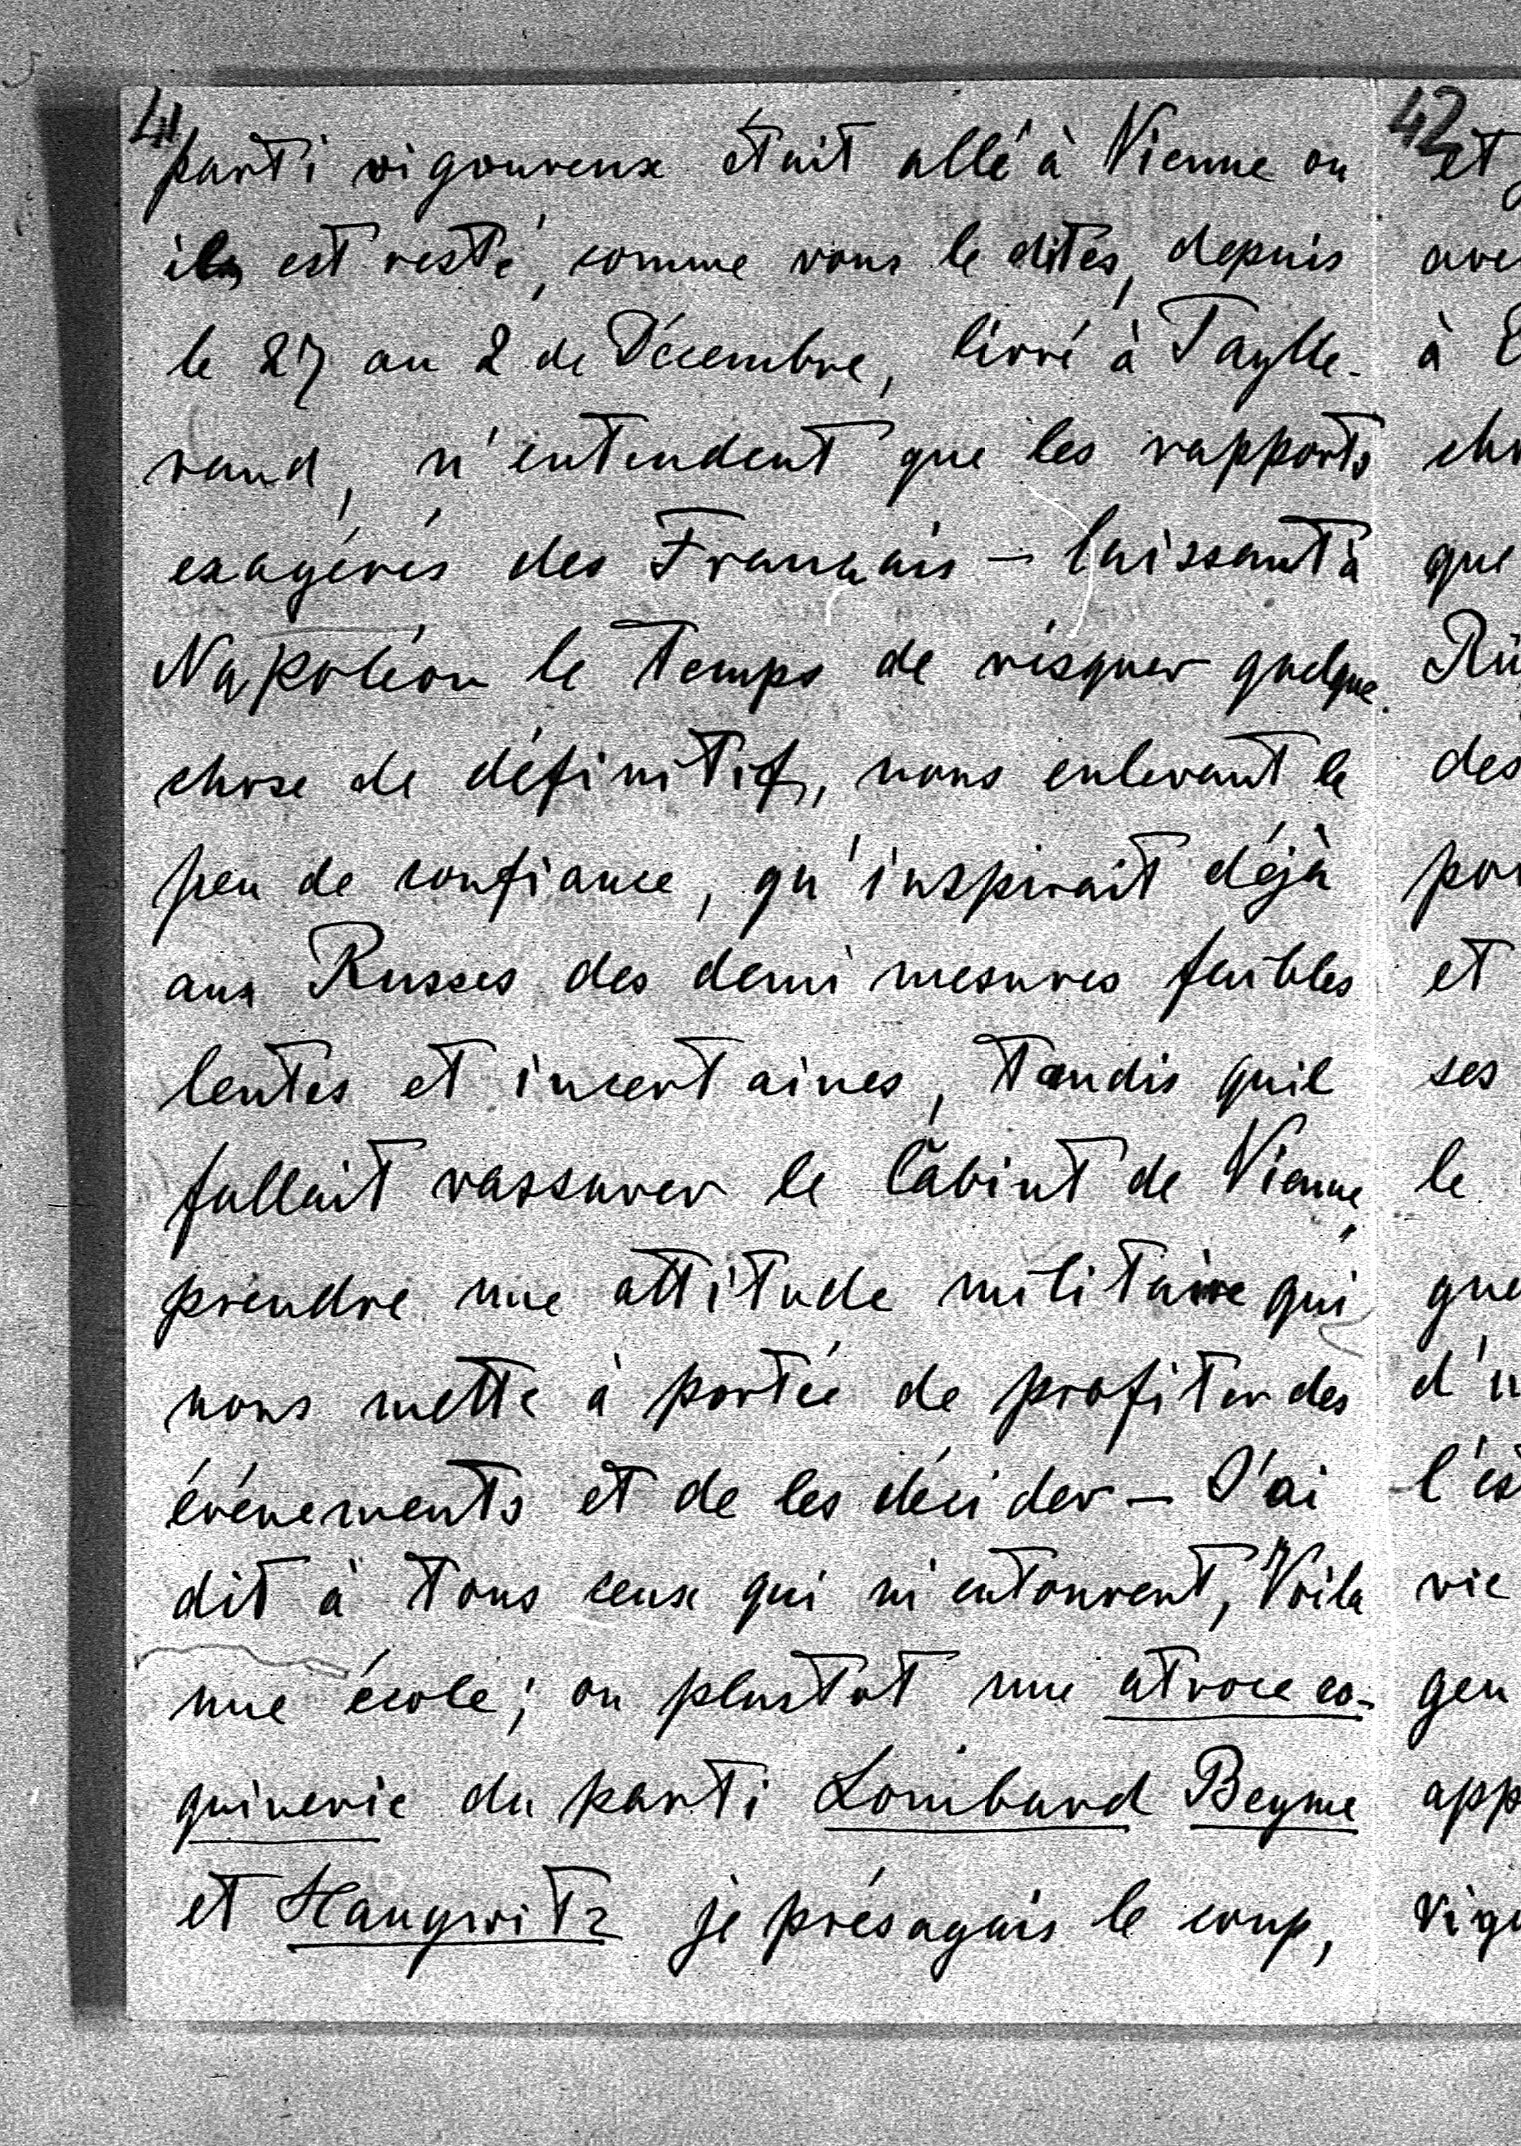 41
parti vigoureux était allé à Vienne ou
il est resté, comme vous le dites, depuis
le 27 au 2 de Décembre, livré à Taylle-
rand, n'entendent que les rapports
exagérés des Français - laissant à
Napoléon le temps de risquer quelque
chose de définitif, nous enlevant le
peu de confiance, qu'inspirait déjà
aux Russes des demi mesures faibles
lentes et incertaines, tandis quil
fallait rassurer le Cabint de Vienne,
prendre une attitude militaire qui
nous mette à portée de profiter des
événements et de les décider - J'ai
dit à tous ceux qui m'entourent, Voila
une école; ou plustot une atroce co-
quinerie du parti Lombard Beyme
et Haugwitz je présagais le coup,
42
et
ave
à
che
que
Rü
des
por
et
ses
le
que
d'u
l'es
vie
gen
app
vigo